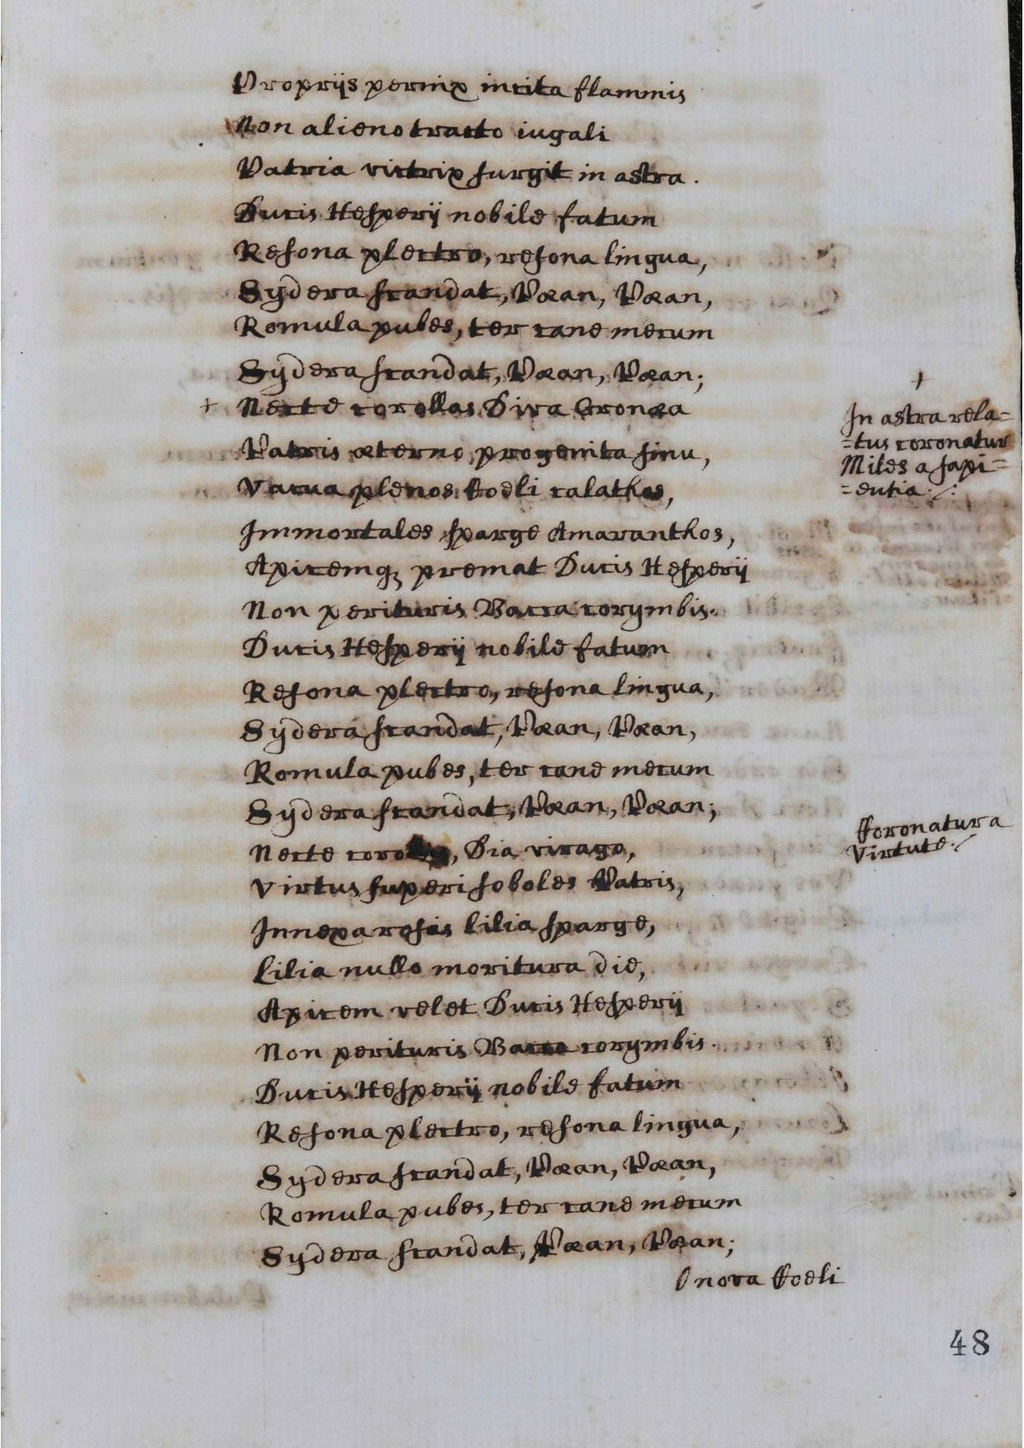 Proprijs pernix incita flammis
Non alieno tracto iugali
Patria victrix surgit in astra.
Ducis Hesperij nobile fatum
Resona plectro, resona lingua,
Sydera scandat, Pæan, Pæan,
Romula pubes, ter cane mecum
Sydera scandat, Pæan, Pæan;
+ Necte corollas Diva Cronæa
Patris æterno progenita sinu,
Vacua plenos Coeli calathos,
Immortales sparge Amaranthos,
Apicemq; premat Ducis Hesperij
Non perituris Bacca corymbis.
Ducis Hesperij nobile fatum
Resona plectro, resona lingua,
Sydera scandat, Pæan, Pæan,
Romula pubes, ter cane mecum
Sydera scandat, Pæan, Pæan;
Necte, Dia virago,
Virtus superi soboles Patris,
Innexa rosis lilia sparge,
Lilia nullo moritura die,
Apicem velet Ducis Hesperij
Non perituris Bacca corymbis.
Ducis Hesperij nobile fatum
Resona plectro, resona lingua,
Sydera scandat, Pæan, Pæan,
Romula pubes, ter cane mecum
Sydera scandat, Pæan, Pæan;
O nova Coeli
+
In astra rela=
=tus coronatur
Miles a sapi=
=entia./.
Coronatur a
Virtute./
48